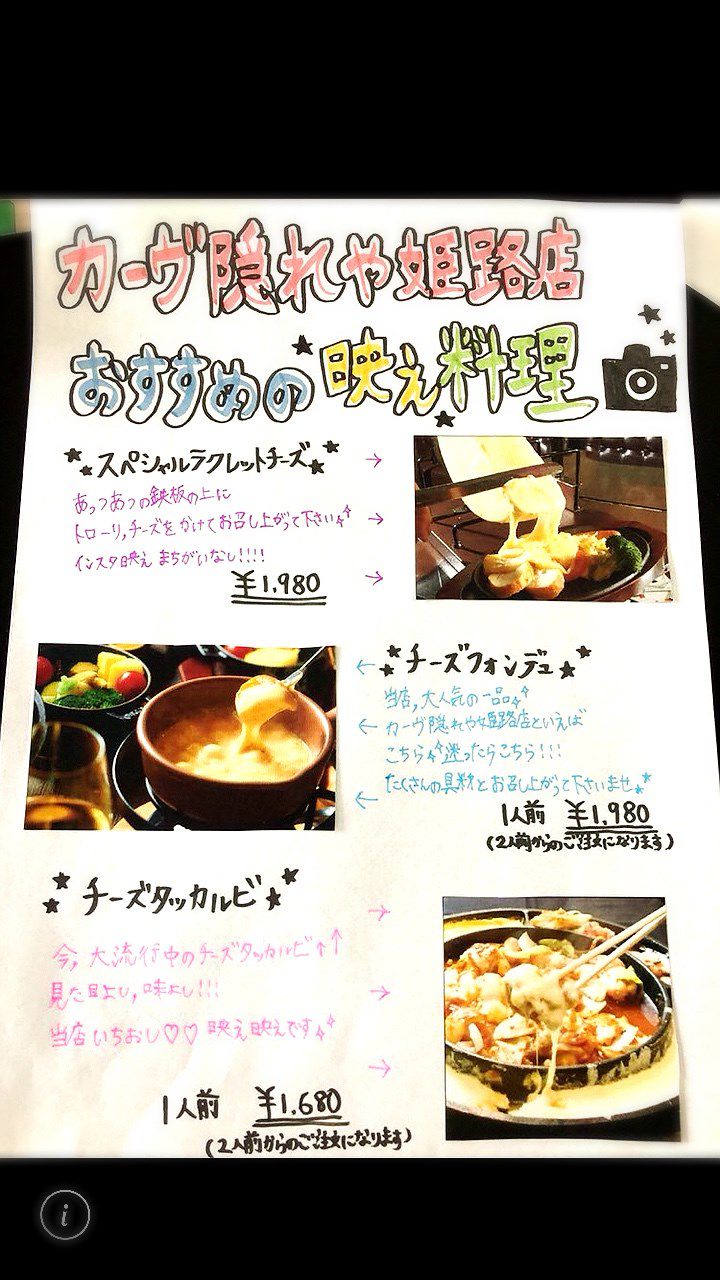 カーヴ隠れや姫路店
おすすめの映え料理
スペシャルラクレットチーズ
あっつあつの鉄板の上に
トローリ,チーズをかけてお召し上がって下さい
インスタ映えまちがいなし!!!!
¥1.980
チーズフォンデュ
当店,大人気の一品
カーヴ隠れや姫路店といえば
こちら 迷ったらこちら!!!
たくさんの具材とお召し上がって下さいませ
1人前 ¥1,980
(2人前からのご注文になります)
チーズタッカルビ
今,大流行中のチーズタッカルビ↑↑
見た目よし,味よし!!!
当店いちおし♡♡ 映え映えです
1人前 ¥1.680
(2人前からのご注文になります)